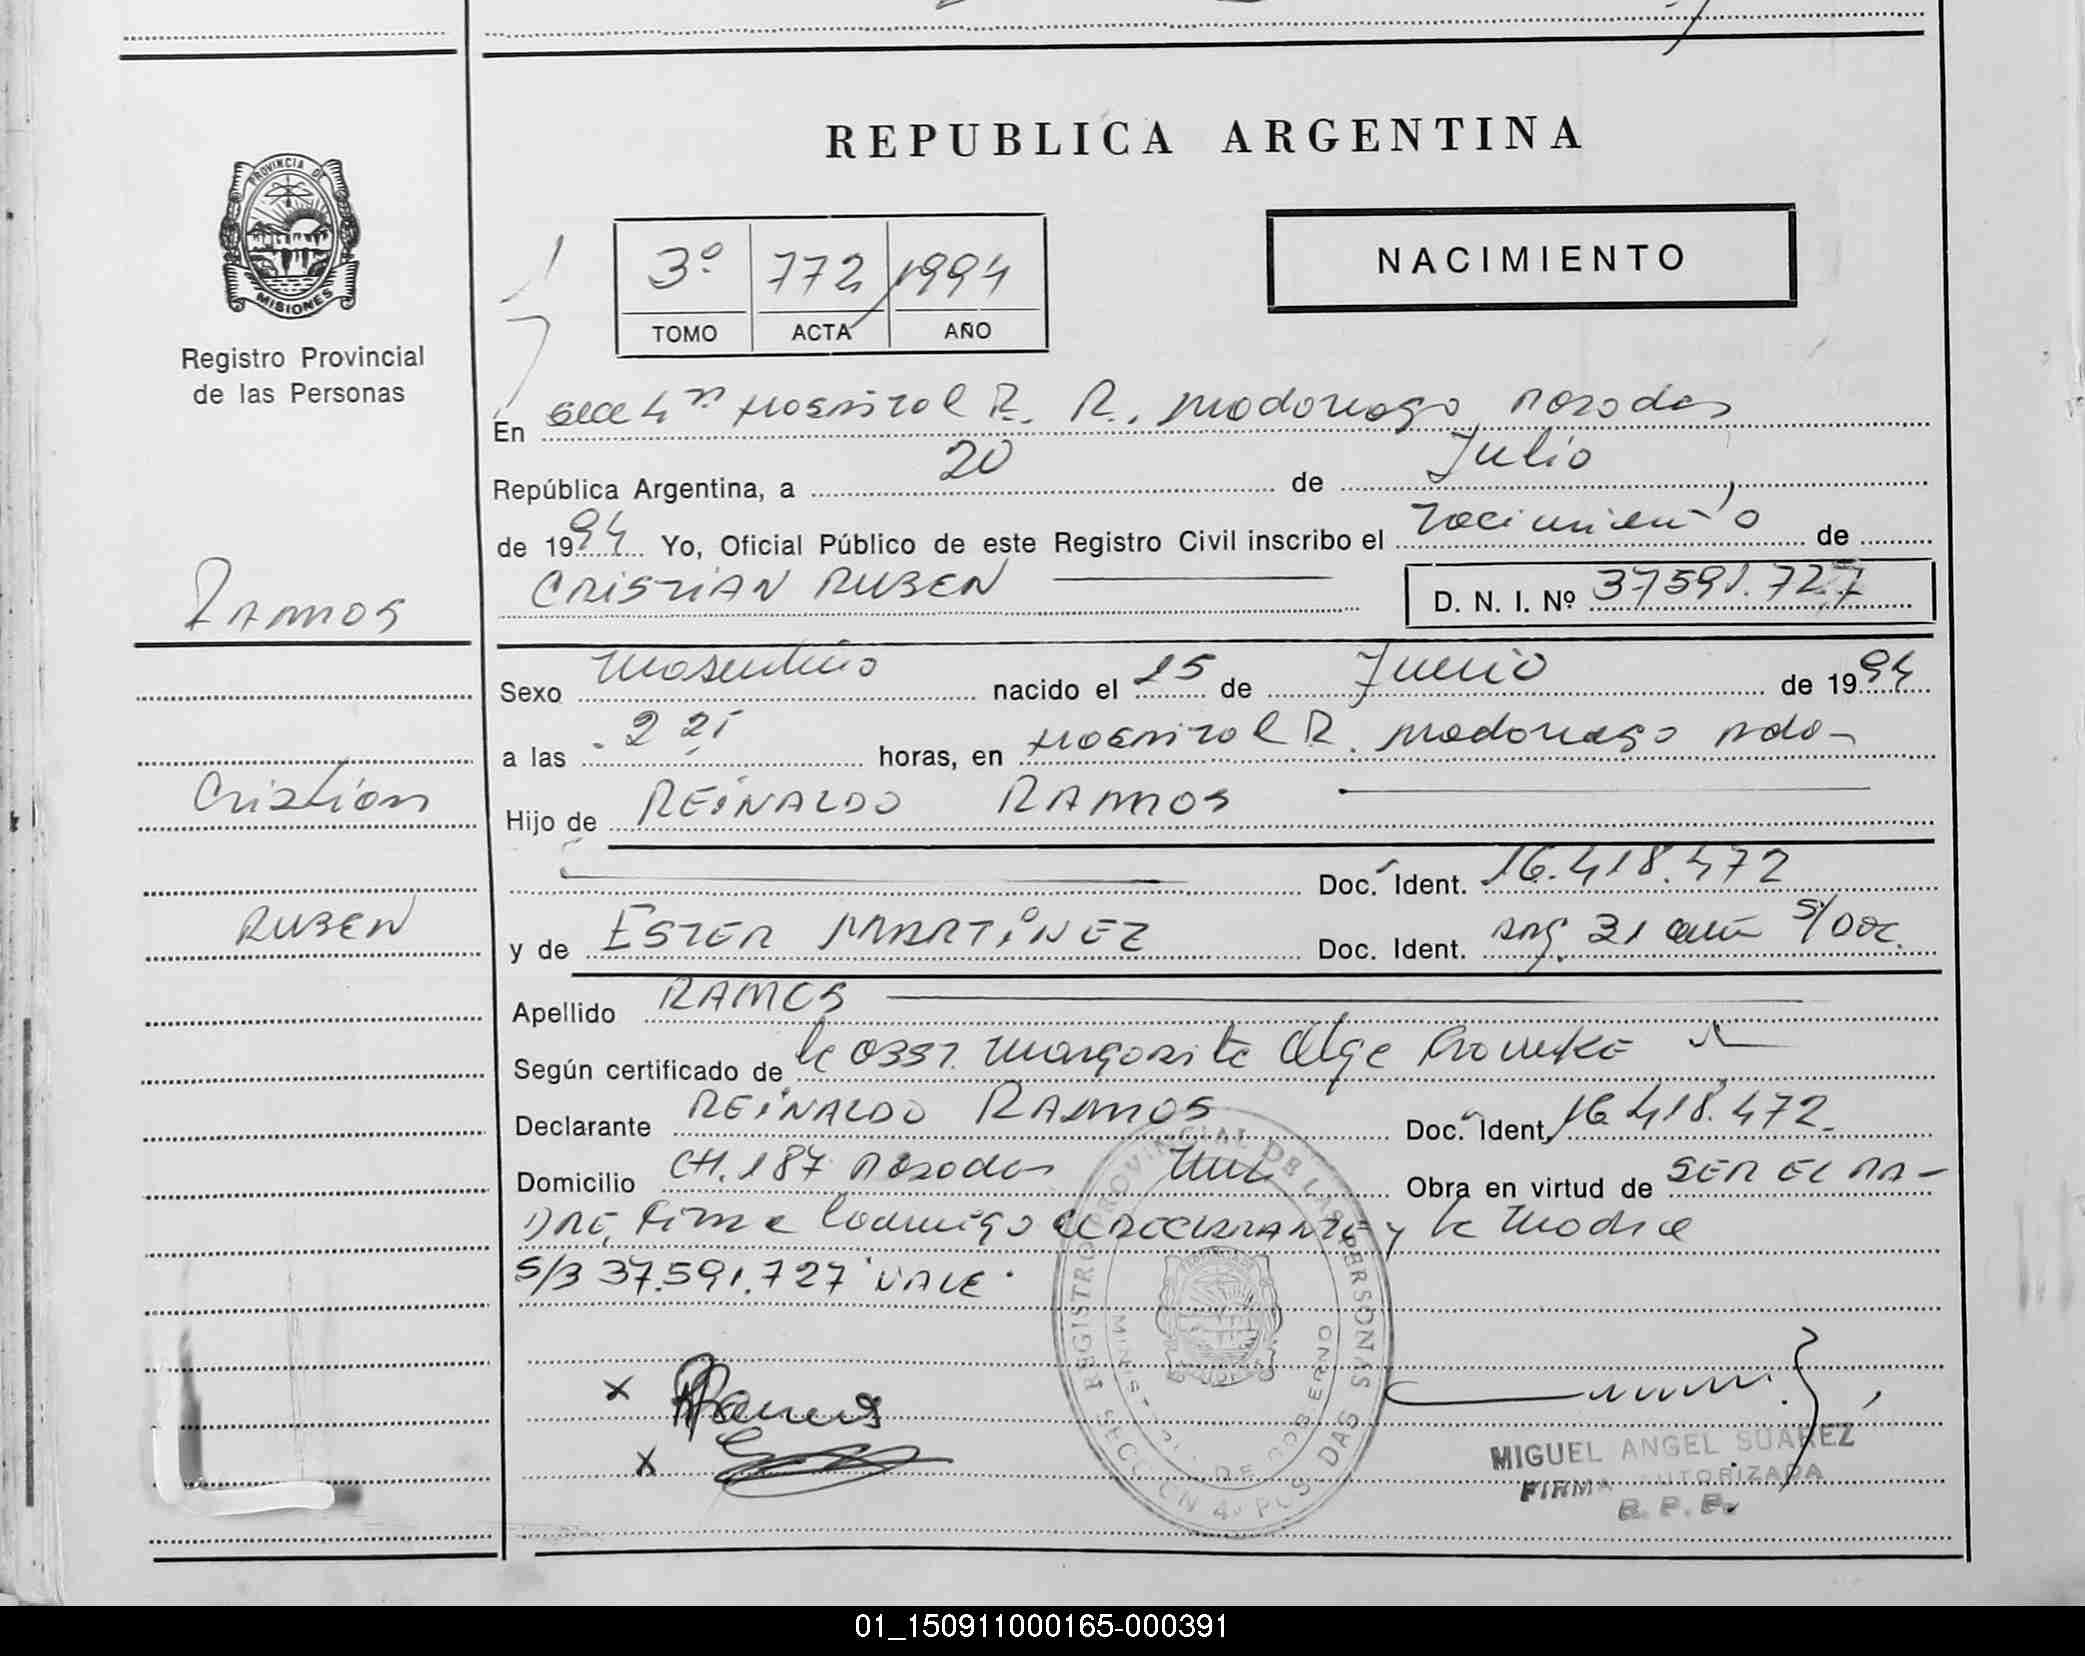 PROVINCIA DE
MISIONES
Registro Provincial
de las Personas
REPUBLICA ARGENTINA
NACIMIENTO
3º 772 1994
TOMO ACTA AÑO
En Secc 4ª Hospital R. R. Madariaga Posadas
República Argentina, a 20 de Julio
de 1994 Yo, Oficial Público de este Registro Civil inscribo el Nacimiento de
CRISTIAN RUBEN D. N. I. Nº 37591.727
RAMOS
Cristian
RUBEN
Sexo Masculino nacido el 15 de Junio de 1994
a las 2 21 horas, en Hospital R. Madariaga Pdas
Hijo de REINALDO RAMOS
Doc. Ident. 16.418.472
y de ESTER MARTINEZ Doc. Ident. Arg. 31 años S/Doc.
Apellido RAMOS
Según certificado de la Obst. Margarita Olga
Declarante REINALDO RAMOS Doc. Ident. 16.418.472.
Domicilio CH. 187 Posadas Mnes Obra en virtud de SER EL PA-
DRE, Firma Conmigo el DECLARANTE y la Madre
S/B 37.591.727 "VALE"
x Ramos
x
REGISTRO PROVINCIAL DE LAS PERSONAS
MINISTERIO DE GOBIERNO
SECCION 4ª POSADAS
MIGUEL ANGEL SUAREZ
FIRMA AUTORIZADA
R. P. P.
01_150911000165-000391